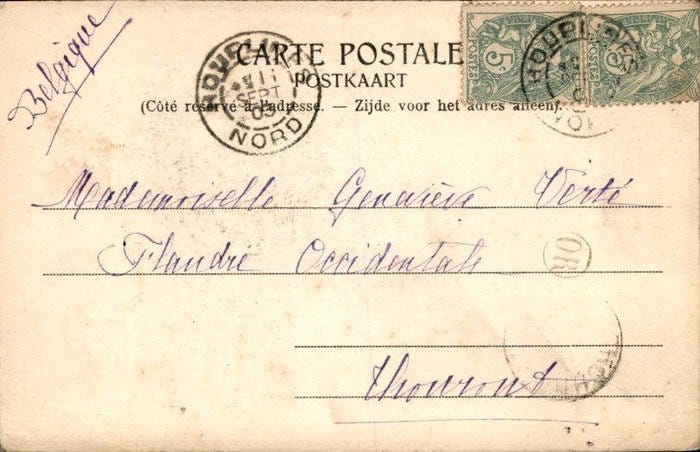 Belgique
CARTE POSTALE
POSTKAART
(Côté réservé à l'adresse. — Zijde voor het adres alleen).
HOUPLINES
11
SEPT
03
NORD
5c
POSTES
HOUPLINES
Mademoiselle Geneviève Verté
Flandre Occidentale
OR
Thourout